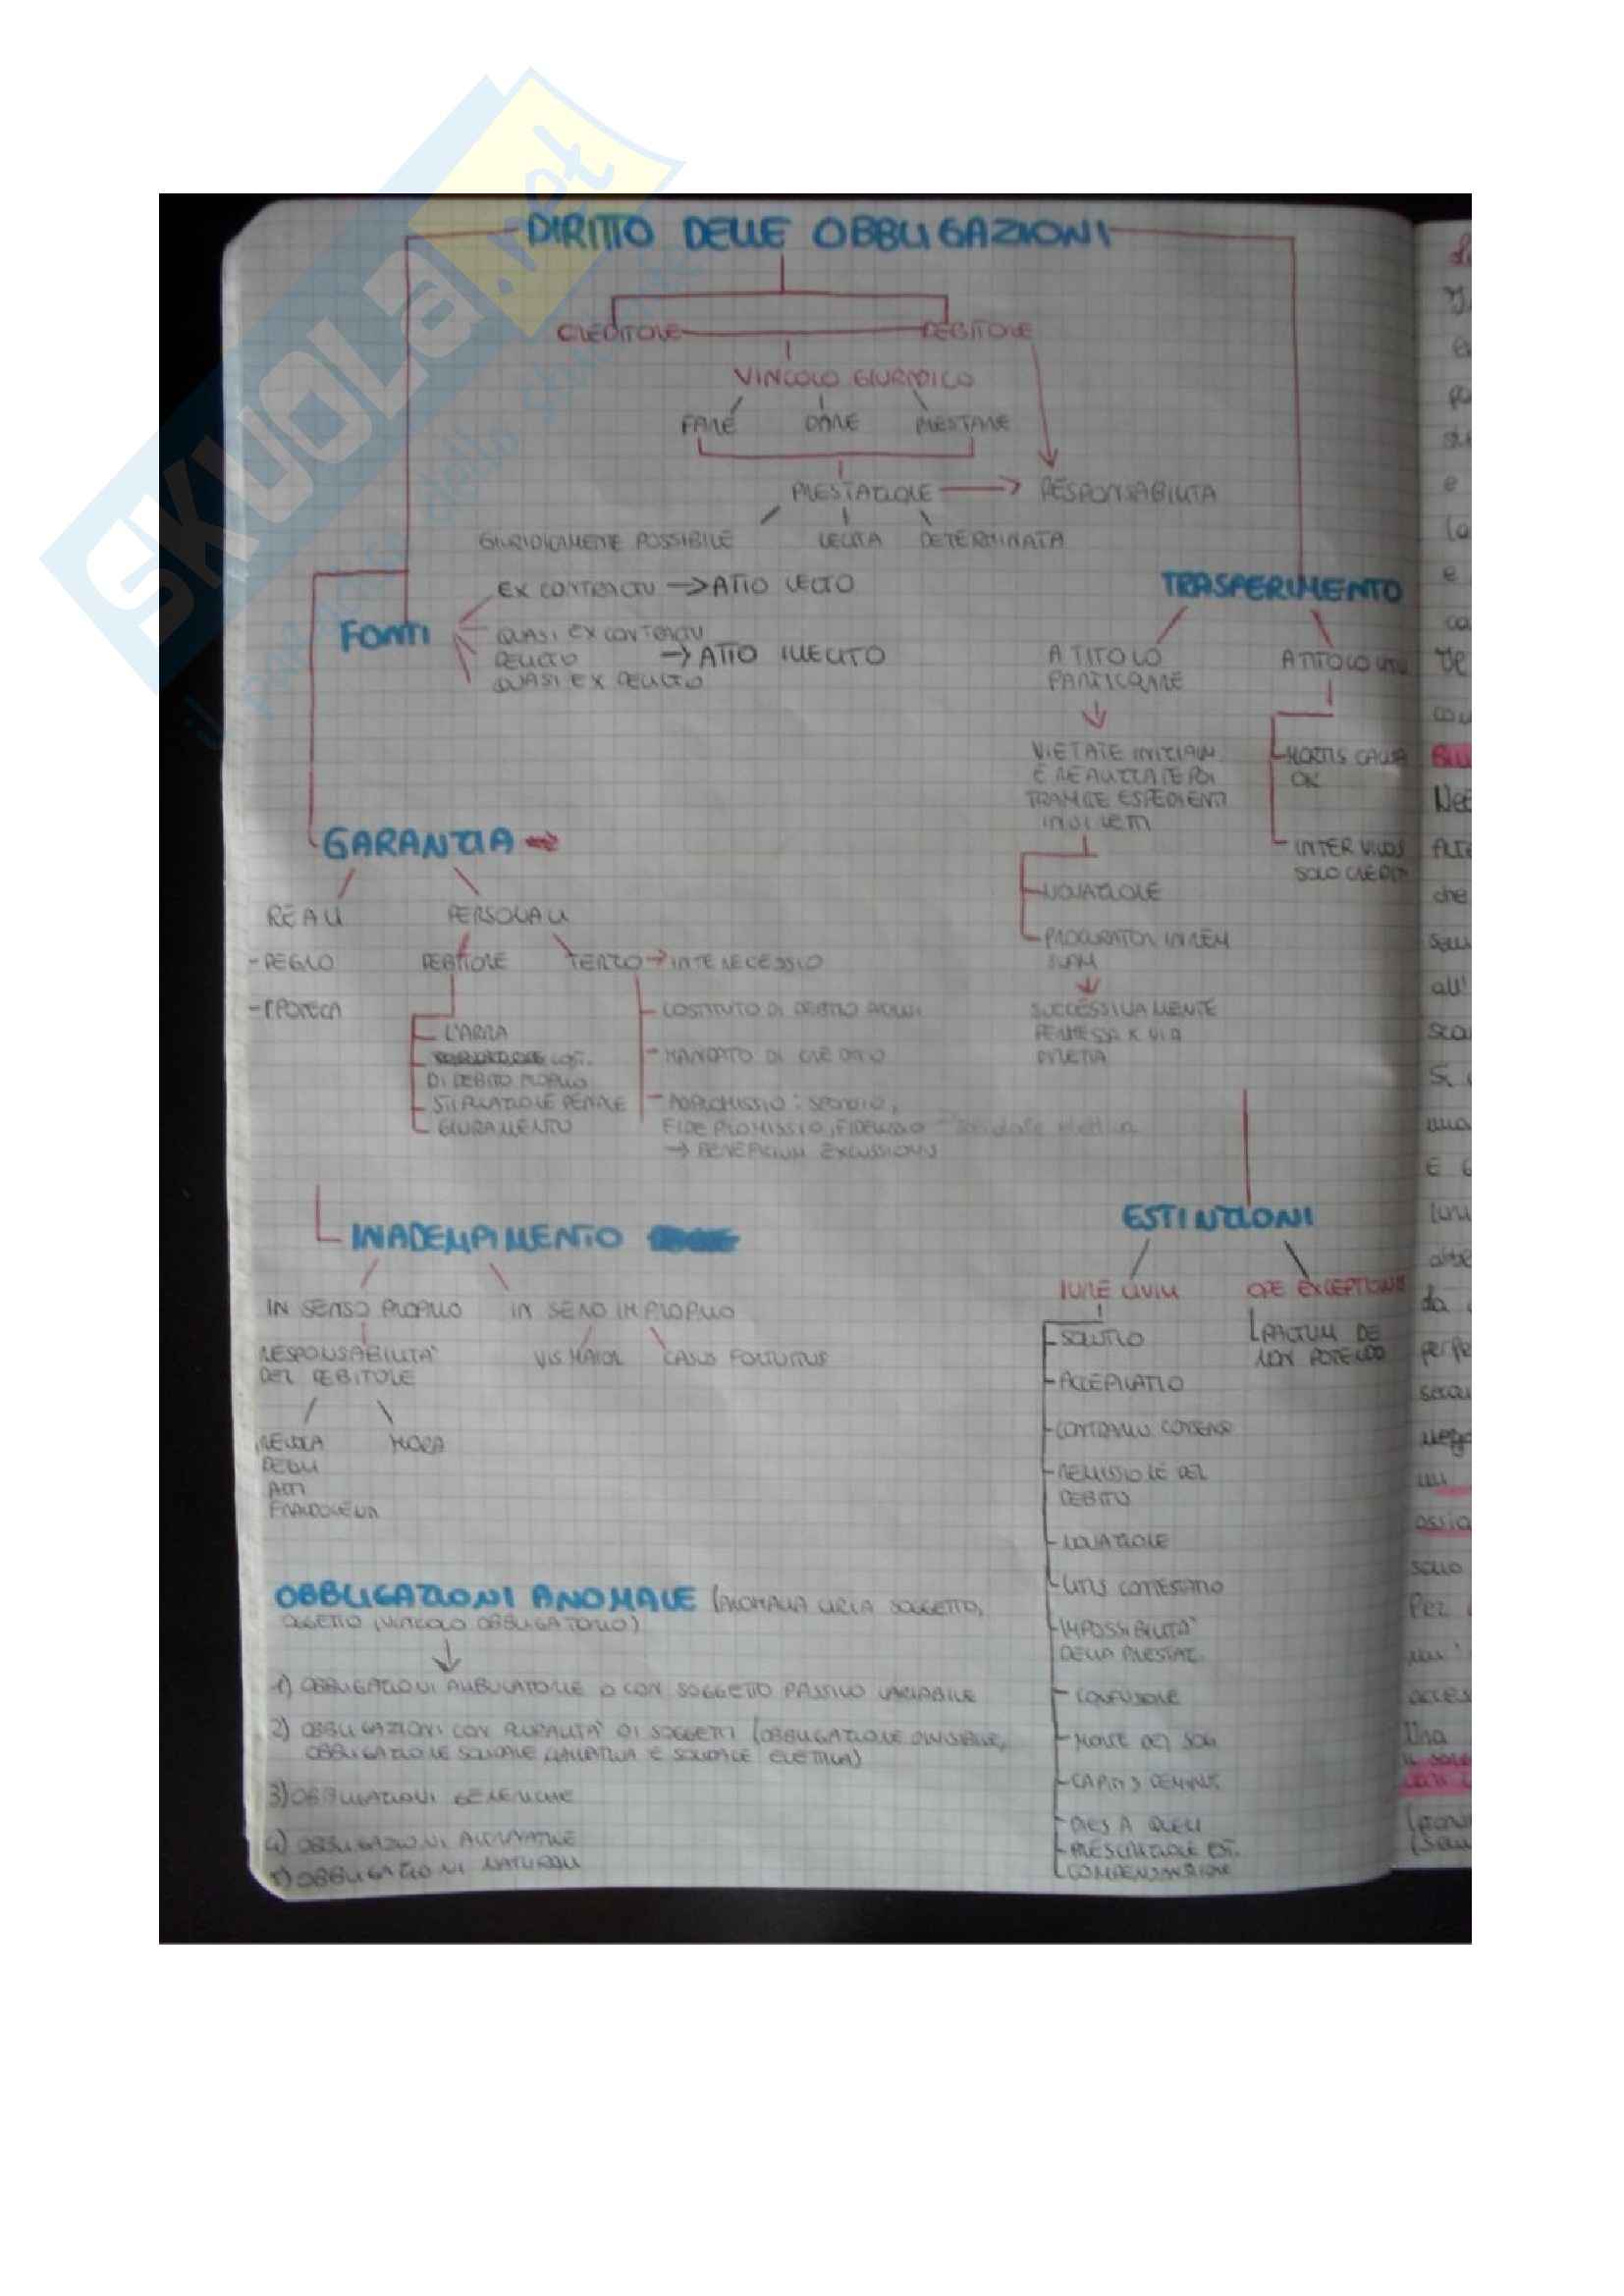 DIRITTO DELLE OBBLIGAZIONI
CREDITORE DEBITORE
VINCOLO GIURIDICO
FARE DARE PRESTARE
PRESTAZIONE → RESPONSABILITÀ
GIURIDICAMENTE POSSIBILE LECITA DETERMINATA
FONTI
EX CONTRACTU → ATTO LECITO
QUASI EX CONTRACTU
DELICTO → ATTO ILLECITO
QUASI EX DELICTO
TRASFERIMENTO
A TITOLO
PARTICOLARE
A TITOLO
VIETATE INIZIALM.
E REALIZZATE POI
TRAMITE ESPEDIENTI
INDIRETTI
NOVAZIONE
PROCURATOR IN REM
SUAM
SUCCESSIVAMENTE
PERMESSA X VIA
DIRETTA
MORTIS CAUSA
OK
INTER VIVOS
SOLO CREDITI
GARANZIA →
REALI PERSONALI
- PEGNO
- IPOTECA
DEBITORE TERZO → INTERCESSIO
L'ARRA
COST.
DI DEBITO PROPRIO
STIPULAZIONE PENALE
GIURAMENTO
COSTITUTO DI DEBITO ALTRUI
- MANDATO DI CREDITO
- ADPROMISSIO: SPONSIO,
FIDEPROMISSIO, FIDEIUSSIO
→ BENEFICIUM EXCUSSIONIS
INADEMPIMENTO
IN SENSO PROPRIO IN SENSO IMPROPRIO
RESPONSABILITÀ
DEL DEBITORE
VIS MAIOR CASUS FORTUITUS
REVOCA
DEGLI
ATTI
FRAUDOLENTI
MORA
ESTINZIONI
IURE CIVILI OPE EXCEPTIONIS
SOLUTIO
ACCEPTILATIO
CONTRARIUS CONSENSUS
REMISSIONE DEL
DEBITO
NOVAZIONE
LITIS CONTESTATIO
IMPOSSIBILITÀ
DELLA PRESTAZ.
CONFUSIONE
MORTE DEI SOGG.
CAPITIS DEMINUT.
DIES A QUEM
PRESCRIZIONE EST.
COMPENSAZIONE
PACTUM DE
NON PETENDO
OBBLIGAZIONI ANOMALE (ANOMALIA CIRCA SOGGETTO,
OGGETTO, VINCOLO OBBLIGATORIO)
1) OBBLIGAZIONI AMBULATORIE O CON SOGGETTO PASSIVO VARIABILE
2) OBBLIGAZIONI CON PLURALITÀ DI SOGGETTI (OBBLIGAZIONE DIVISIBILE,
OBBLIGAZIONE SOLIDALE CUMULATIVA E SOLIDALE ELETTIVA)
3) OBBLIGAZIONI GENERICHE
4) OBBLIGAZIONI ALTERNATIVE
5) OBBLIGAZIONI NATURALI
SKUOLA.net